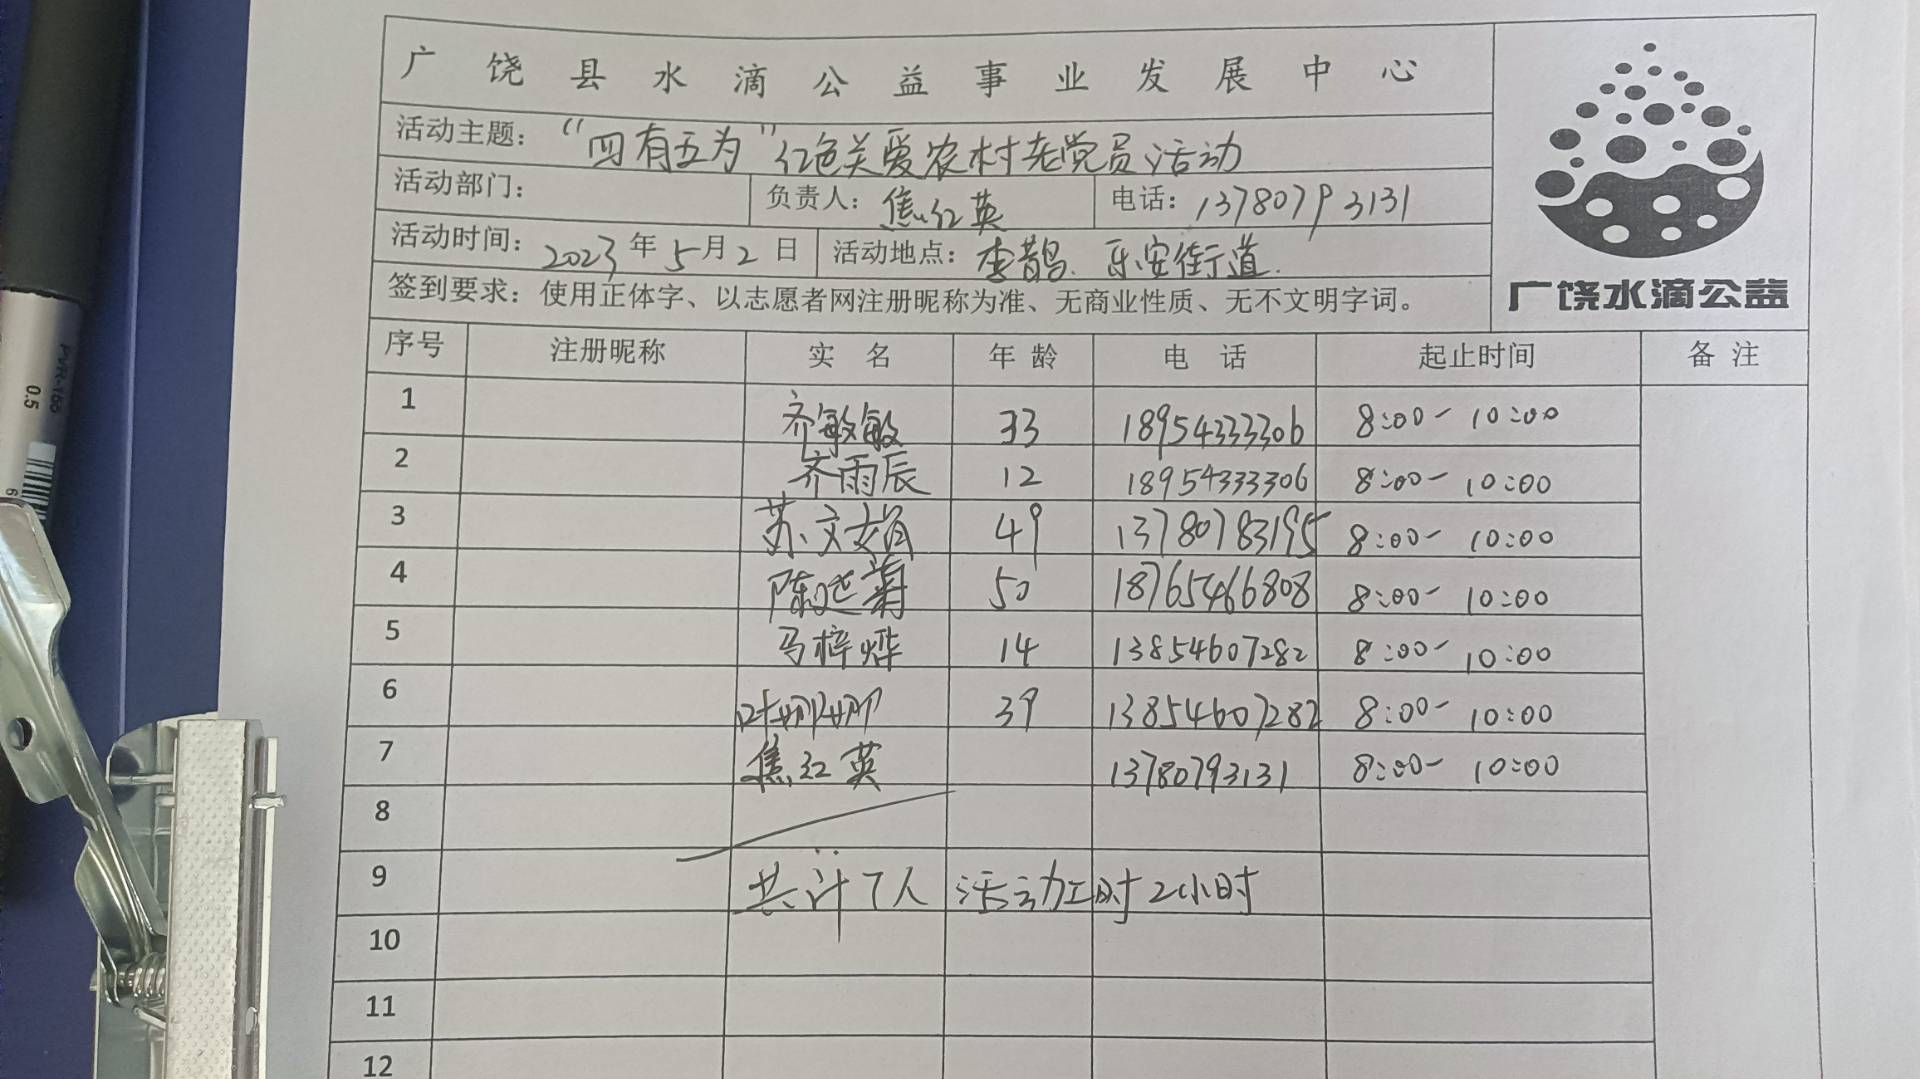 广饶县水滴公益事业发展中心
活动主题：“四有五为”红色关爱农村老党员活动
活动部门： 负责人：焦红英 电话：13780793131
活动时间：2023年5月2日 活动地点：李鹊.乐安街道.
签到要求：使用正体字、以志愿者网注册昵称为准、无商业性质、无不文明字词。
广饶水滴公益
序号 注册昵称 实名 年龄 电话 起止时间 备注
1 齐敏敏 33 18954333306 8:00-10:00
2 齐雨辰 12 18954333306 8:00-10:00
3 苏文娟 49 13780783195 8:00-10:00
4 陈延菊 50 18765466808 8:00-10:00
5 马梓烨 14 13854607282 8:00-10:00
6 叶娜娜 39 13854607282 8:00-10:00
7 焦红英 13780793131 8:00-10:00
8
9 共计7人 活动工时2小时
10
11
12
0.5